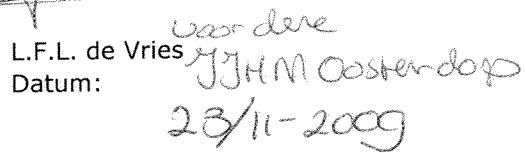 voor deze
L.F.L. de Vries JJHM Oosterdorp
Datum:
23/11-2009